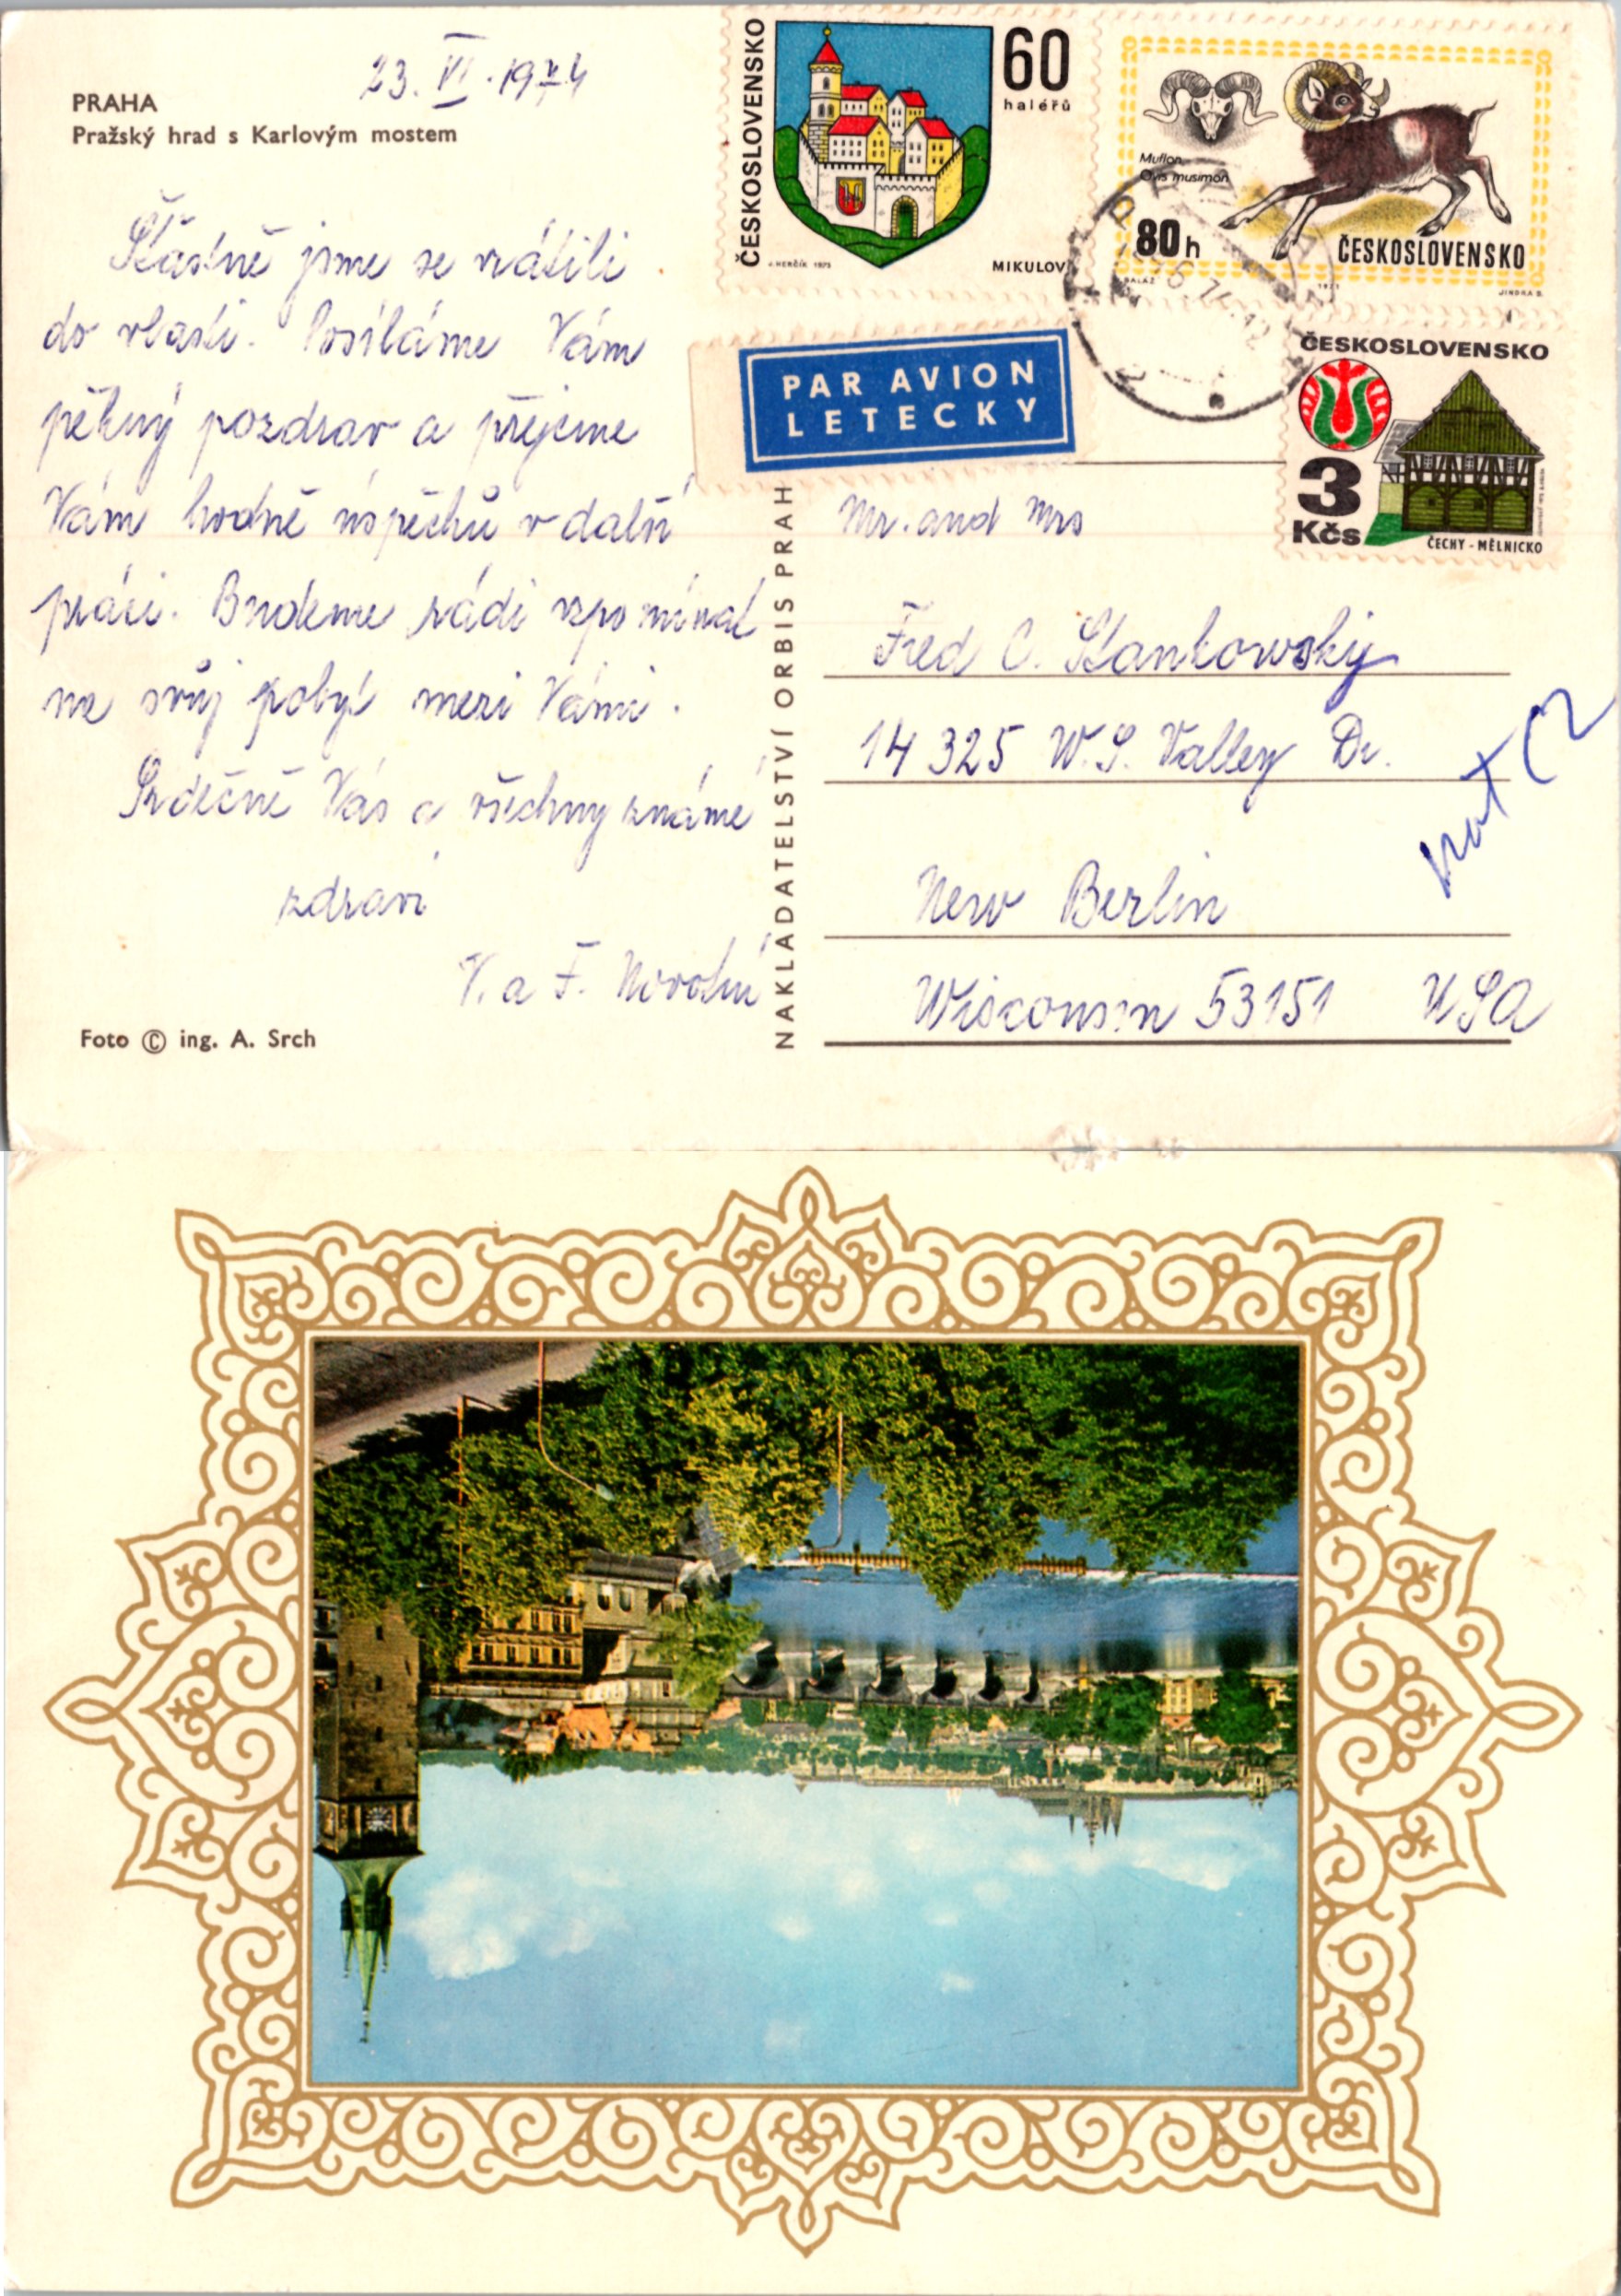 PRAHA
Pražský hrad s Karlovým mostem
23. VI. 1974
Šťastně jsme se vrátili
do vlasti. Posíláme Vám
pěkný pozdrav a přejeme
Vám hodně úspěchů v další
práci. Budeme rádi vzpomínat
na svůj pobyt mezi Vámi.
Srdečně Vás a všechny známé
zdraví
V. a F. Novotní
Foto © ing. A. Srch
NAKLADATELSTVÍ ORBIS PRAH
ČESKOSLOVENSKO
60
haléřů
J. HERČÍK 1973
MIKULOV
Muflon
Ovis musimon
80h
ČESKOSLOVENSKO
BALÁŽ
1971
JINDRA S.
PRAHA
6.74.12
PAR AVION
LETECKY
ČESKOSLOVENSKO
3
Kčs
ČECHY - MĚLNICKO
Mr. and Mrs
Fred C. Stankowsky
14 325 W. S. Valley Dr.
New Berlin
Wisconsin 53151 USA